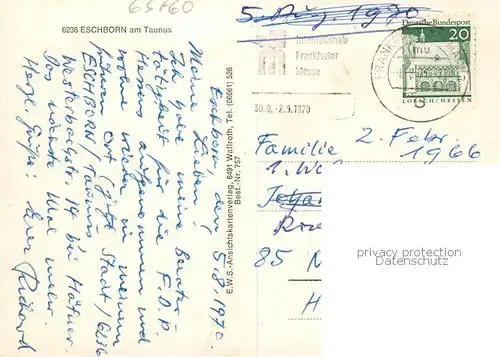 65760
6236 ESCHBORN am Taunus
Eschborn, den 5.8.1970.
Meine Lieben!
Ich habe meine Berater-
tätigkeit für die F.D.P.
Hessen aufgenommen und
wohne wieder in meinem
früheren Ort (jetzt Stadt) 6236
ESCHBORN/Taunus
Westerbachstr. 14 bei Häfner.
Das nächste Mal mehr.
Herzl. Grüße! Euer Richard.
E.W.S.-Ansichtskartenverlag, 6491 Wallroth, Tel. (06661) 526
Best.-Nr. 797
5. Aug. 1970
Internationale
Frankfurter
Messe
30.8.-2.9.1970
Deutsche Bundespost
20
LORSCH/HESSEN
FRANK
2. Febr.
1966
Familie
85 N
H
privacy protection
Datenschutz